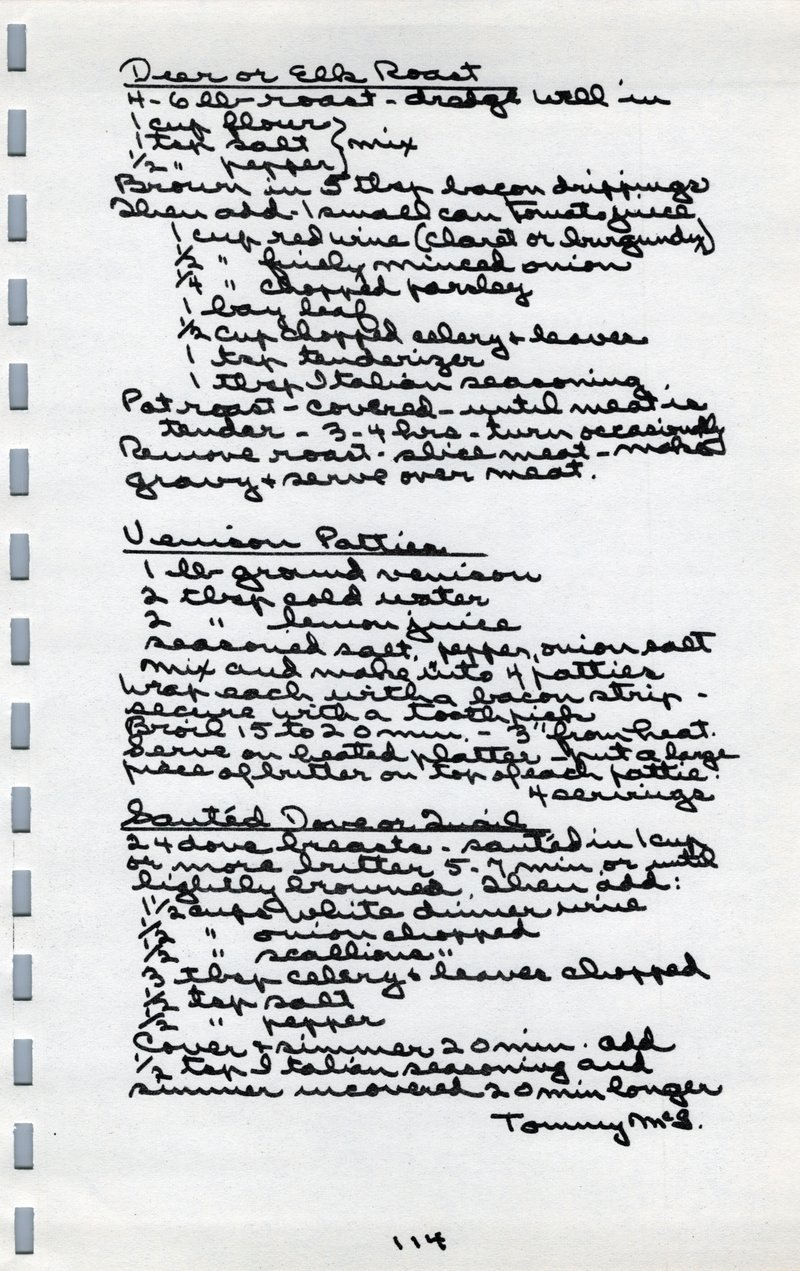 Deer or Elk Roast
4-6 lb roast - dredge well in
1 cup flour
1 tsp salt } mix
1/2 " pepper
Brown in 5 tbsp bacon drippings
Then add - 1 small can Tomato juice
1 cup red wine (claret or burgundy)
1/2 " finely minced onion
1/4 " chopped parsley
1 bay leaf
1/2 cup chopped celery + leaves
1 tsp tenderizer
1 tbsp Italian seasoning
Pot roast - covered - until meat is
tender - 3-4 hrs - turn occasionally
Remove roast - slice meat - make
gravy + serve over meat.
Venison Patties
1 lb ground venison
2 tbsp cold water
2 " lemon juice
seasoned salt, pepper, onion salt
mix and make into 4 patties
Wrap each with a bacon strip -
secure with a toothpick
Broil 15 to 20 min. - 3" from heat.
Serve on heated platter - put a large
piece of butter on top of each pattie.
4 servings
Sautéd Dove or Quail
24 dove breasts - sautéd in 1 cup
or more butter 5-7 min or until
lightly browned. Then add:
1 1/2 cups white dinner wine
1/2 " onion chopped
1/2 " scallions "
3 tbsp celery + leaves chopped
1/2 tsp salt
1/2 " pepper
Cover + simmer 20 min. add
1/2 tsp Italian seasoning and
simmer uncovered 20 min longer
Tommy McS.
114